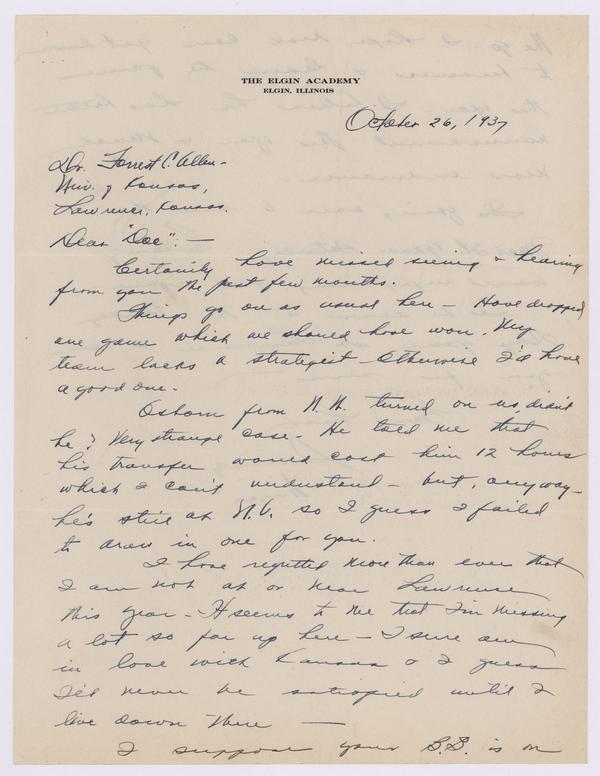 THE ELGIN ACADEMY
ELGIN, ILLINOIS
October 26, 1937
Dr. Forrest C. Allen-
Univ. of Kansas,
Lawrence, Kansas.
Dear "Doc": —
Certainly have missed seeing & hearing
from you the past few months.
Things go on as usual here - Have dropped
one game which we should have won. My
team lacks a strategist - Otherwise I'd have
a good one.
Osborn from N. U. turned on us didn't
he? Very strange case. He told me that
his transfer would cost him 12 hours
which I can't understand - but, anyway -
he's still at N. U. so I guess I failed
to draw in one for you.
I have regretted more than ever that
I am not at or near Lawrence
this year - It seems to me that I'm missing
a lot so far up here - I sure am
in love with Kansas & I guess
I'd never be satisfied until I
live down there —
I suppose your B.B. is on